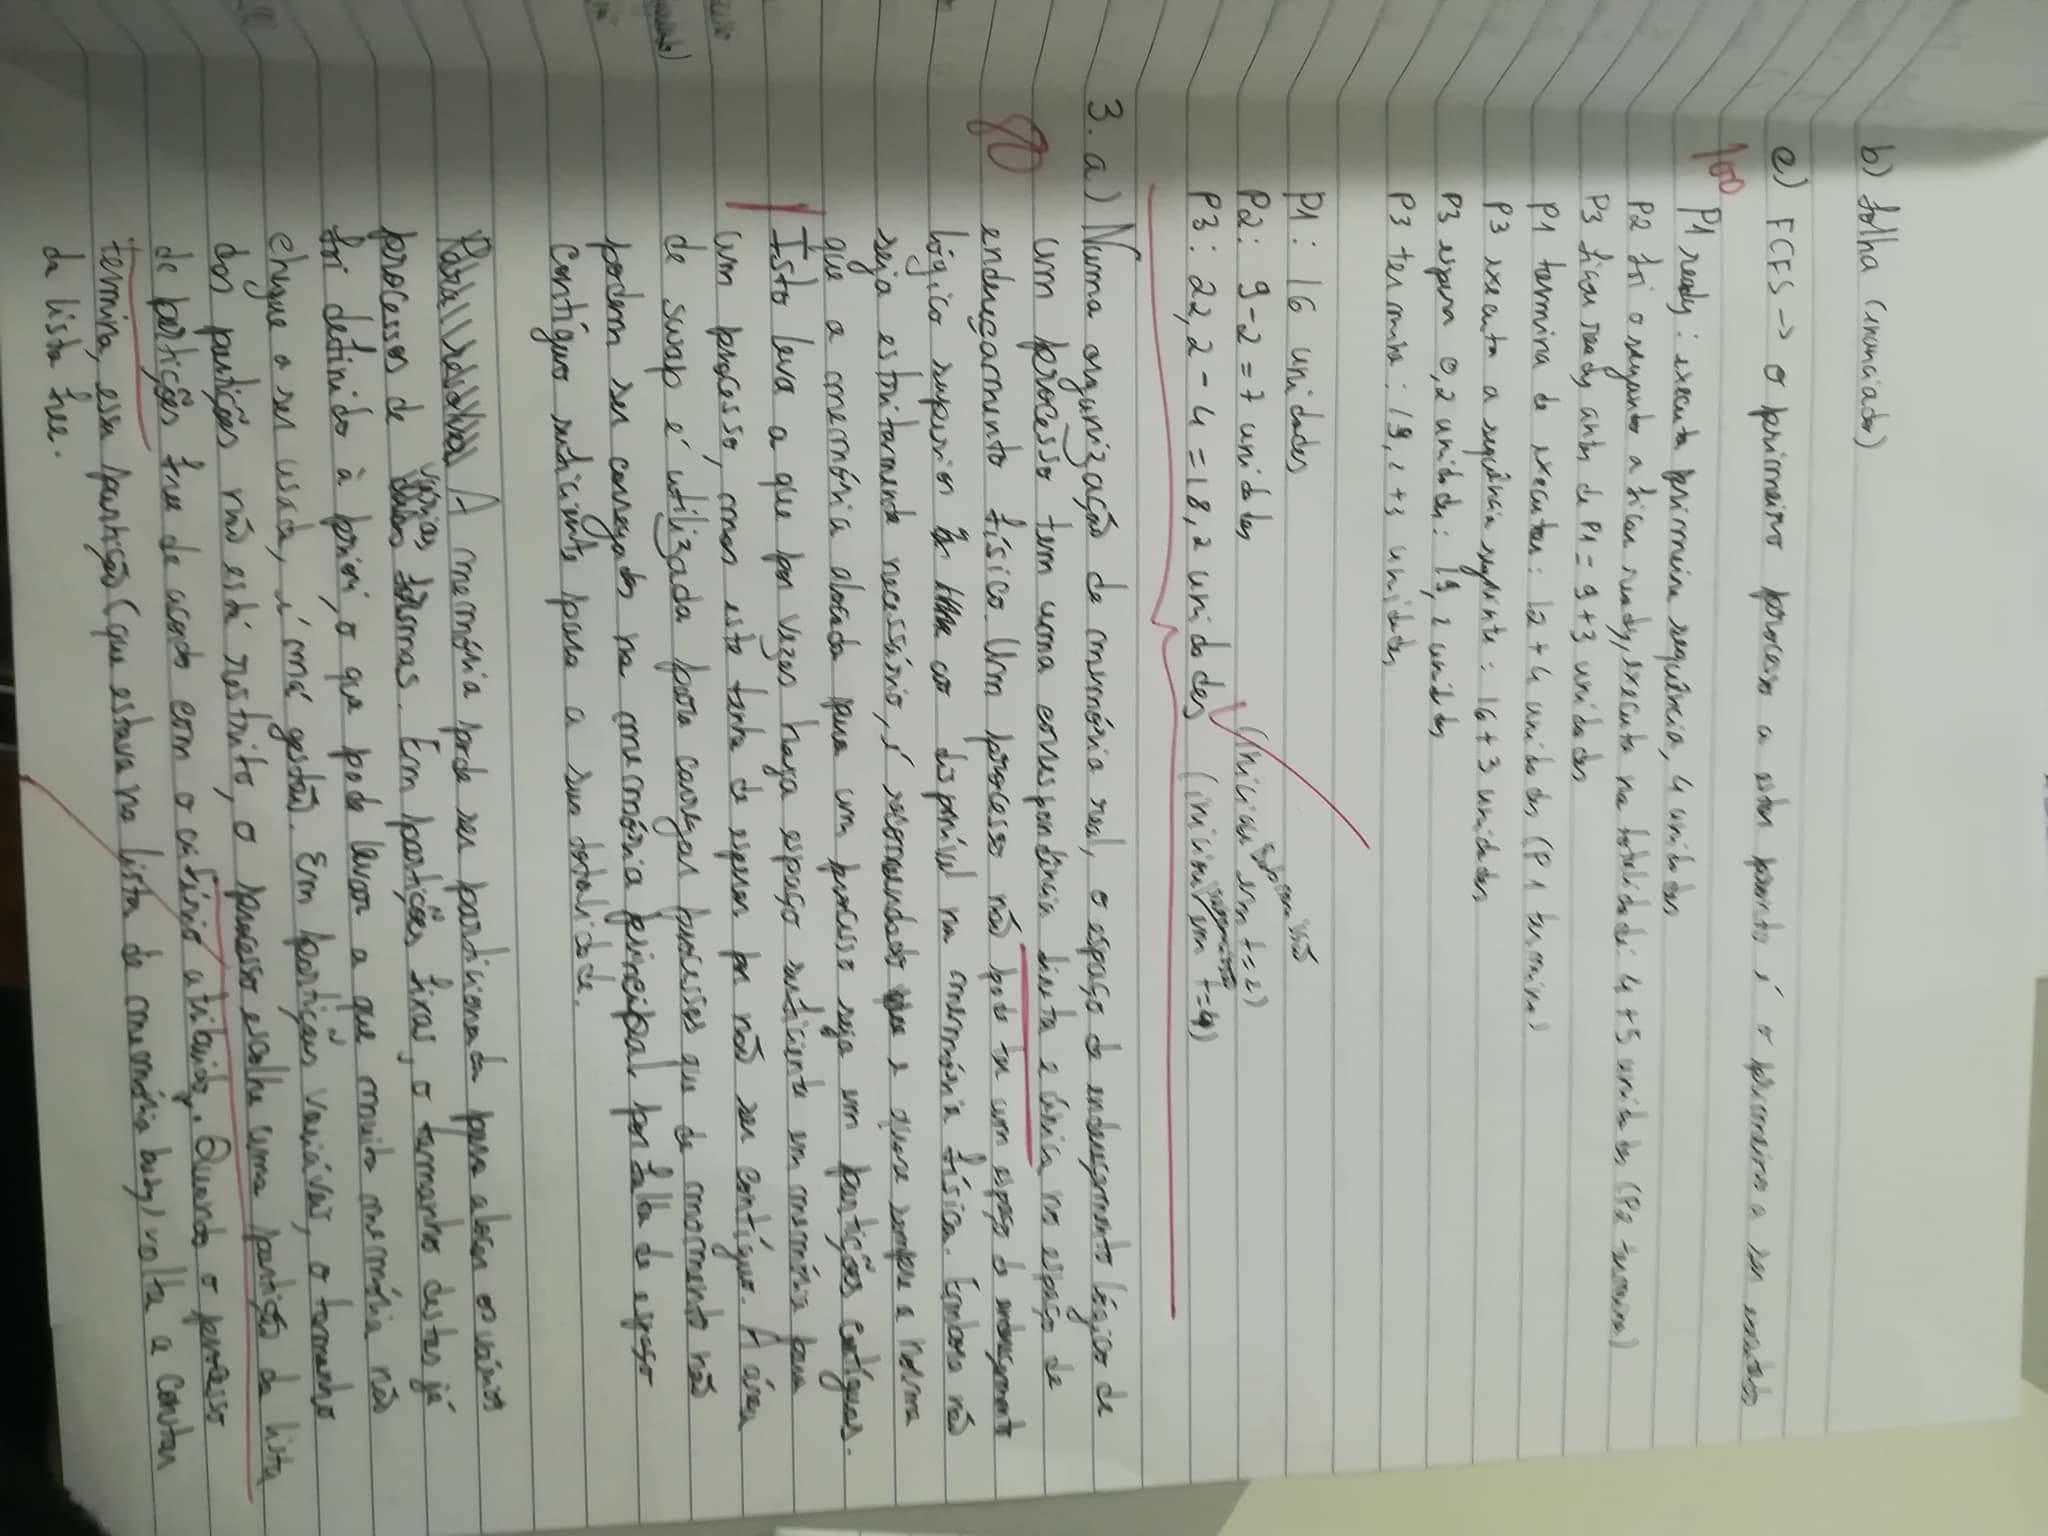 b) folha (enunciado)
c) FCFS -> o primeiro processo a estar pronto é o primeiro a ser executado
100
P1 ready: executa primeira sequência, 4 unidades
P2 foi o segundo a ficar ready, executa na totalidade: 4+5 unidades (P2 termina)
P3 ficou ready antes de P1 = 9+3 unidades
P1 termina de executar: 12+4 unidades (P1 termina)
P3 executa a sequência seguinte: 16+3 unidades
P3 espera 0,2 unidades: 19,2 unidades
P3 termina: 19,2+3 unidades
P1: 16 unidades
P2: 9-2=7 unidades (iniciou submissão em t=2)
P3: 22,2-4=18,2 unidades (iniciou submissão em t=4)
3. a) Numa organização de memória real, o espaço de endereçamento lógico de
80
um processo tem uma correspondência direta e única no espaço de
endereçamento físico. Um processo não pode ter um espaço de endereçamento
lógico superior ao disponível na memória física. Embora não
seja estritamente necessário, é recomendado e quase sempre a norma
que a memória alocada para um processo seja em partições contíguas.
Isto leva a que por vezes haja espaço suficiente em memória para
um processo, mas este tenha de esperar por não ser contíguo. A área
de swap é utilizada para carregar processos que de momento não
podem ser carregados na memória principal por falta de espaço
contíguo suficiente para a sua totalidade.
Para resolver A memória pode ser particionada para alocar os vários
processos de várias formas. Em partições fixas, o tamanho destas já
foi definido à priori, o que pode levar a que muita memória não
chegue a ser usada, é má gestão. Em partições variáveis, o tamanho
das partições não está restrito, o processo escolhe uma partição da lista
de partições free de acordo com o critério atribuido. Quando o processo
termina, essa partição (que estava na lista de memória busy) volta a constar
da lista free.